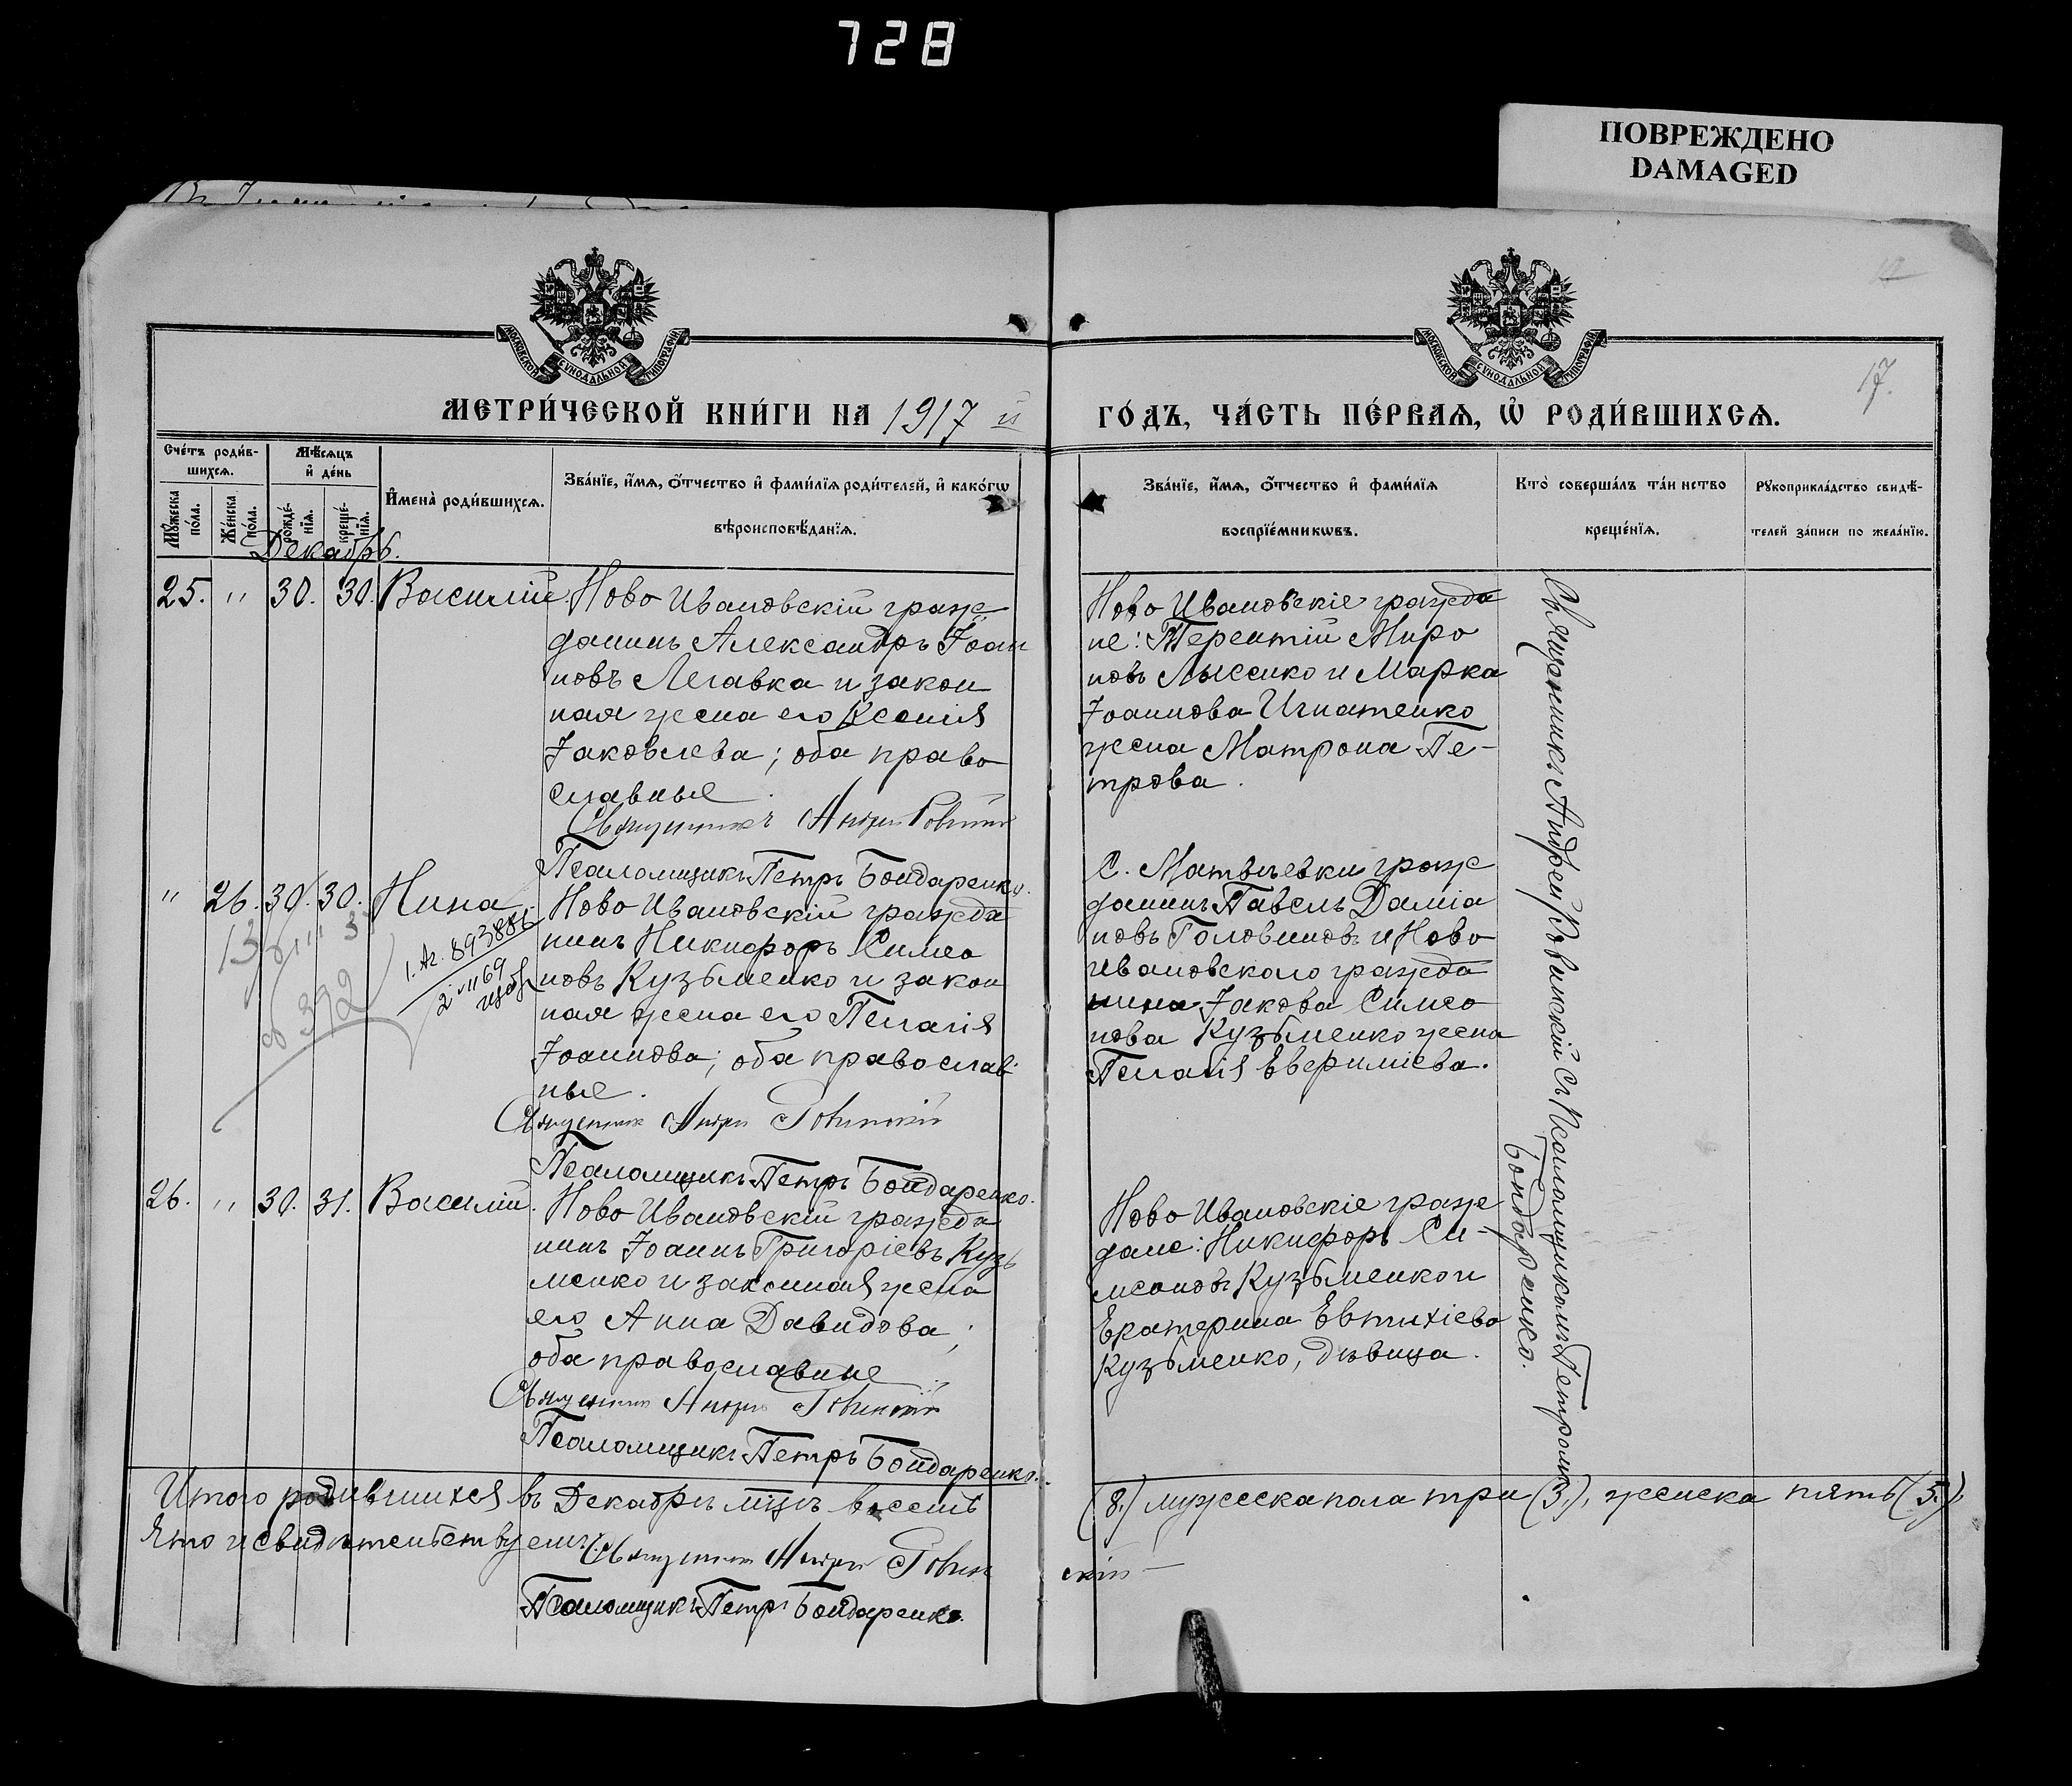 728
ПОВРЕЖДЕНО
DAMAGED
МОСКОВСКОЙ СУНОДАЛЬНОЙ ТИПОГРАФІИ
МОСКОВСКОЙ СУНОДАЛЬНОЙ ТИПОГРАФІИ
17.
МЕТРИ́ЧЕСКОЙ КНИ́ГИ НА 1917 й
ГО́ДЪ, ЧА́СТЬ ПЕ́РВАѦ, Ѡ҆ РОДИ́ВШИХСѦ.
Сче́тъ роди́в-
шихсѧ.
Мѣ́сѧцъ
и҆ де́нь
Мꙋ́жеска
по́ла.
Же́нска
по́ла.
рожде́-
нїѧ.
креще́-
нїѧ.
И҆мена̀ роди́вшихсѧ.
Зва́нїе, и҆́мѧ, о҆́тчество и҆ фами́лїѧ роди́телей, и҆ како́гѡ
вѣроисповѣ́данїѧ.
Зва́нїе, и҆́мѧ, о҆́тчество и҆ фами́лїѧ
воспрїе́мникѡвъ.
Кто̀ соверша́лъ та́инство
креще́нїѧ.
Рꙋкоприкла́дство свидѣ́-
телей за́писи по жела́нїю.
Декабрь.
25. " 30. 30. Василій
Ново Ивановскій граж
данинъ Александръ Іоан
новъ Легавка и закон
ная жена его Ксенія
Іаковлева; оба право
славные.
Священникъ Андрей Ровинскій
Псаломщикъ Петръ Бондаренко.
Ново Ивановскіе гражда
не: Терентій Миро
новъ Лысенко и Марка
Іоаннова Игнатенко
жена Матрона Пе-
трова.
Священникъ Андрей Ровинскій съ Псаломщикомъ Петромъ
Бондаренко.
" 26. 30. 30. Нина
13
392
1. Аг. 893886
2 " 1169
Ново Ивановскій гражда
нинъ Никифоръ Симео
новъ Кузьменко и закон
ная жена его Пелагія
Іоаннова; оба православ
ные.
Священник Андрей Ровинскій
Псаломщикъ Петръ Бондаренко.
С. Матвѣевки граж
данинъ Павелъ Даміа
новъ Головиновъ и Ново
ивановскаго гражда
нина Іакова Симео
нова Кузьменко жена
Пелагія Евфиміева.
26. " 30. 31. Василій.
Ново Ивановскій гражда
нинъ Іоаннъ Григоріевъ Кузь
менко и законная жена
его Анна Давидова;
оба православные
Священник Андрей Ровинскій
Псаломщикъ Петръ Бондаренко.
Ново Ивановскіе граж
дане: Никифоръ Си-
меоновъ Кузьменко и
Екатерина Евтихіева
Кузьменко, дѣвица.
Итого родившихся въ Декабрѣ мѣцѣ восемь
(8.) мужеска пола три (3.), женска пять (5.),
что и свидѣтельствуемъ: Священник Андрей Ровин
скій
Псаломщикъ Петръ Бондаренко.